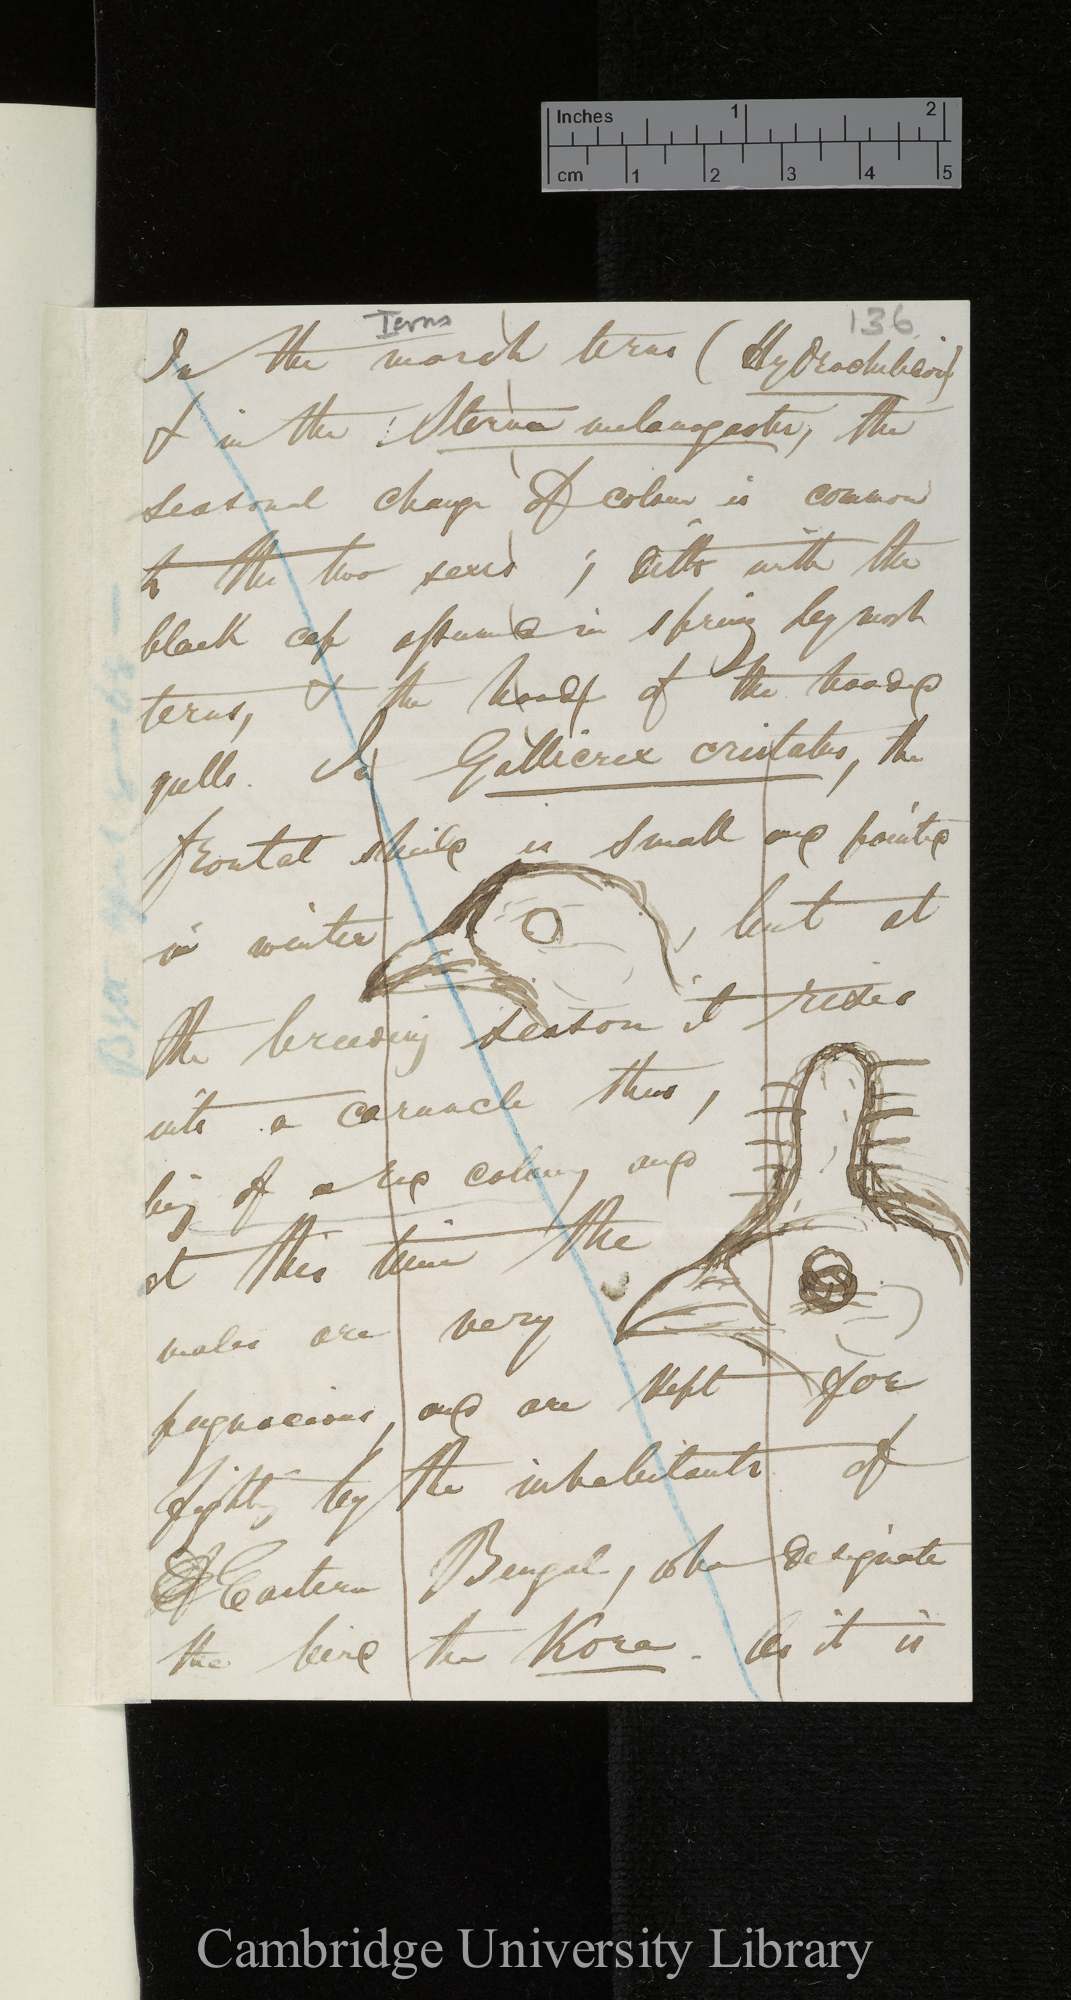 Inches 1 2
cm 1 2 3 4 5
Terns
136
In the marsh terns (Hydrochelidon)
& in the Sterna melanogaster, the
seasonal change of colour is common
to the two sexes ; ditto with the
black cap assumed in spring by most
terns, & the hoods of the hooded
gulls. In Gallicrex cristatus, the
frontal shield is small and pointed
in winter , but at
the breeding season it rises
into a caruncle thus,
being of a red colour, and
at this time the
males are very
pugnacious, and are kept for
fighting by the inhabitants of
Eastern Bengal, who designate
the bird the Kora. As it is
Cambridge University Library